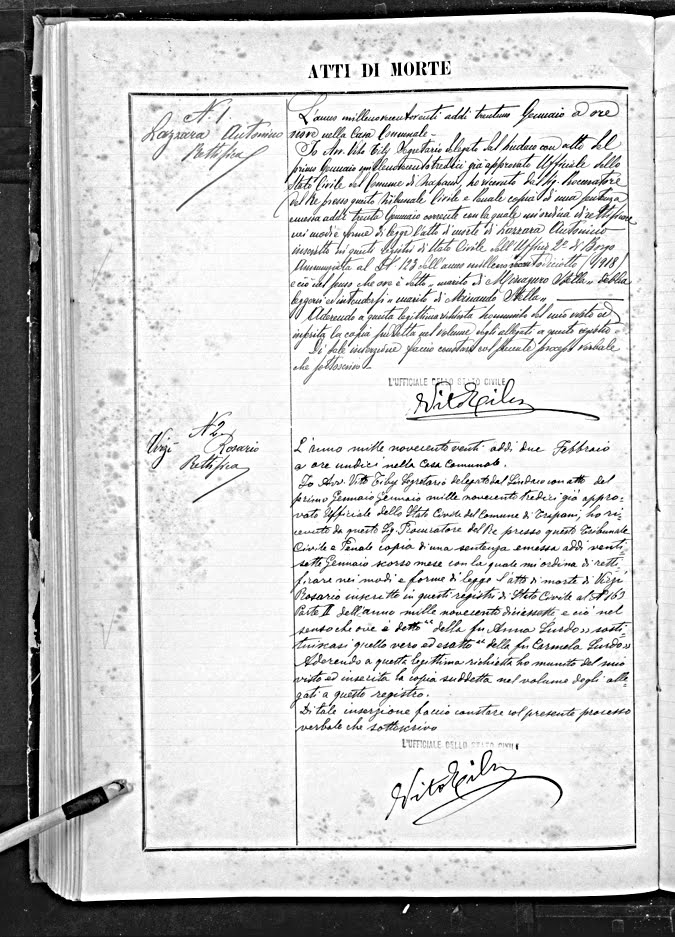 ATTI DI MORTE
N. 1.
Lazzara Antonino
Rettifica
L'anno millenovecentoventi addi trentuno Gennaio a ore
nove nella Casa Comunale.
Io Avv. Vito Tilby Segretario delegato dal Sindaco con atto del
primo Gennaio millenovecentotredici già approvato Ufficiale dello
Stato Civile del Comune di Trapani, ho ricevuto dal Sig. Procuratore
del Re presso questo Tribunale Civile e Penale copia di una sentenza
emessa addi trenta Gennaio corrente con la quale mi ordina di rettificare
nei modi e forme di legge l'atto di morte di Lazzara Antonino
inscritto in questi registri di Stato Civile dell'Ufficio 2° di Borgo
Annunziata al N° 123 dell'anno millenovecentodiciotto 1918
e ciò nel senso che ove è detto "marito di Stella" debba
leggersi ed intendersi "marito di Stella"
Aderendo a questa legittima richiesta ho munito del mio visto ed
inserita la copia suddetta nel volume degli allegati a questo registro.
Di tale inserzione faccio constare col presente processo verbale
che sottoscrivo.
L'UFFICIALE DELLO STATO CIVILE
N 2
Virzì Rosario
Rettifica
L'anno mille novecento venti addi due Febbraio
a ore undici nella Casa Comunale.
Io Avv. Vito Tilby Segretario delegato dal Sindaco con atto del
primo Gennaio Gennaio mille novecento tredici già appro-
vato Ufficiale dello Stato Civile del Comune di Trapani, ho ri-
cevuto da questo Sig. Procuratore del Re presso questo Tribunale
Civile e Penale copia di una sentenza emessa addi venti-
sette Gennaio scorso mese con la quale mi ordina di retti-
ficare nei modi e forme di legge l'atto di morte di Virzì
Rosario inscritto in questi registri di Stato Civile al N° 163
Parte II dell'anno mille novecento diciassette e ciò nel
senso che ove è detto "della fu Anna Surdo" sosti-
tuiscasi quello vero ed esatto "della fu Carmela Surdo"
Aderendo a questa legittima richiesta ho munito del mio
visto ed inserita la copia suddetta nel volume degli alle-
gati a questo registro.
Di tale inserzione faccio constare col presente processo
verbale che sottoscrivo
L'UFFICIALE DELLO STATO CIVILE